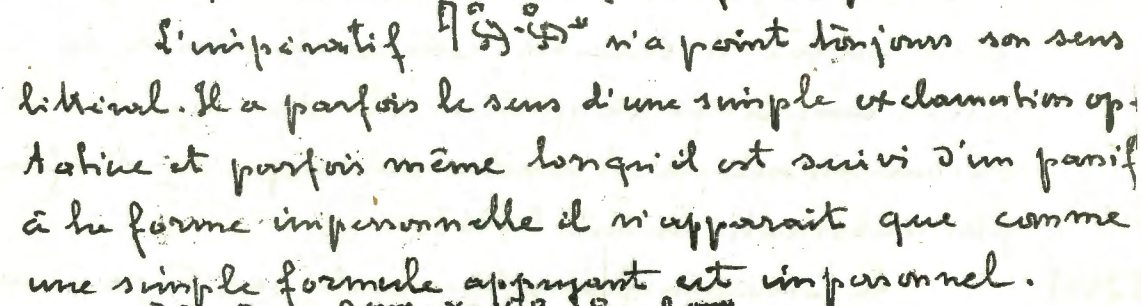 L'impératif n'a point toujours son sens
littéral. Il a parfois le sens d'une simple exclamation op-
tative et parfois même lorsqu'il est suivi d'un passif
à la forme impersonnelle il n'apparait que comme
une simple formule appuyant cet impersonnel.